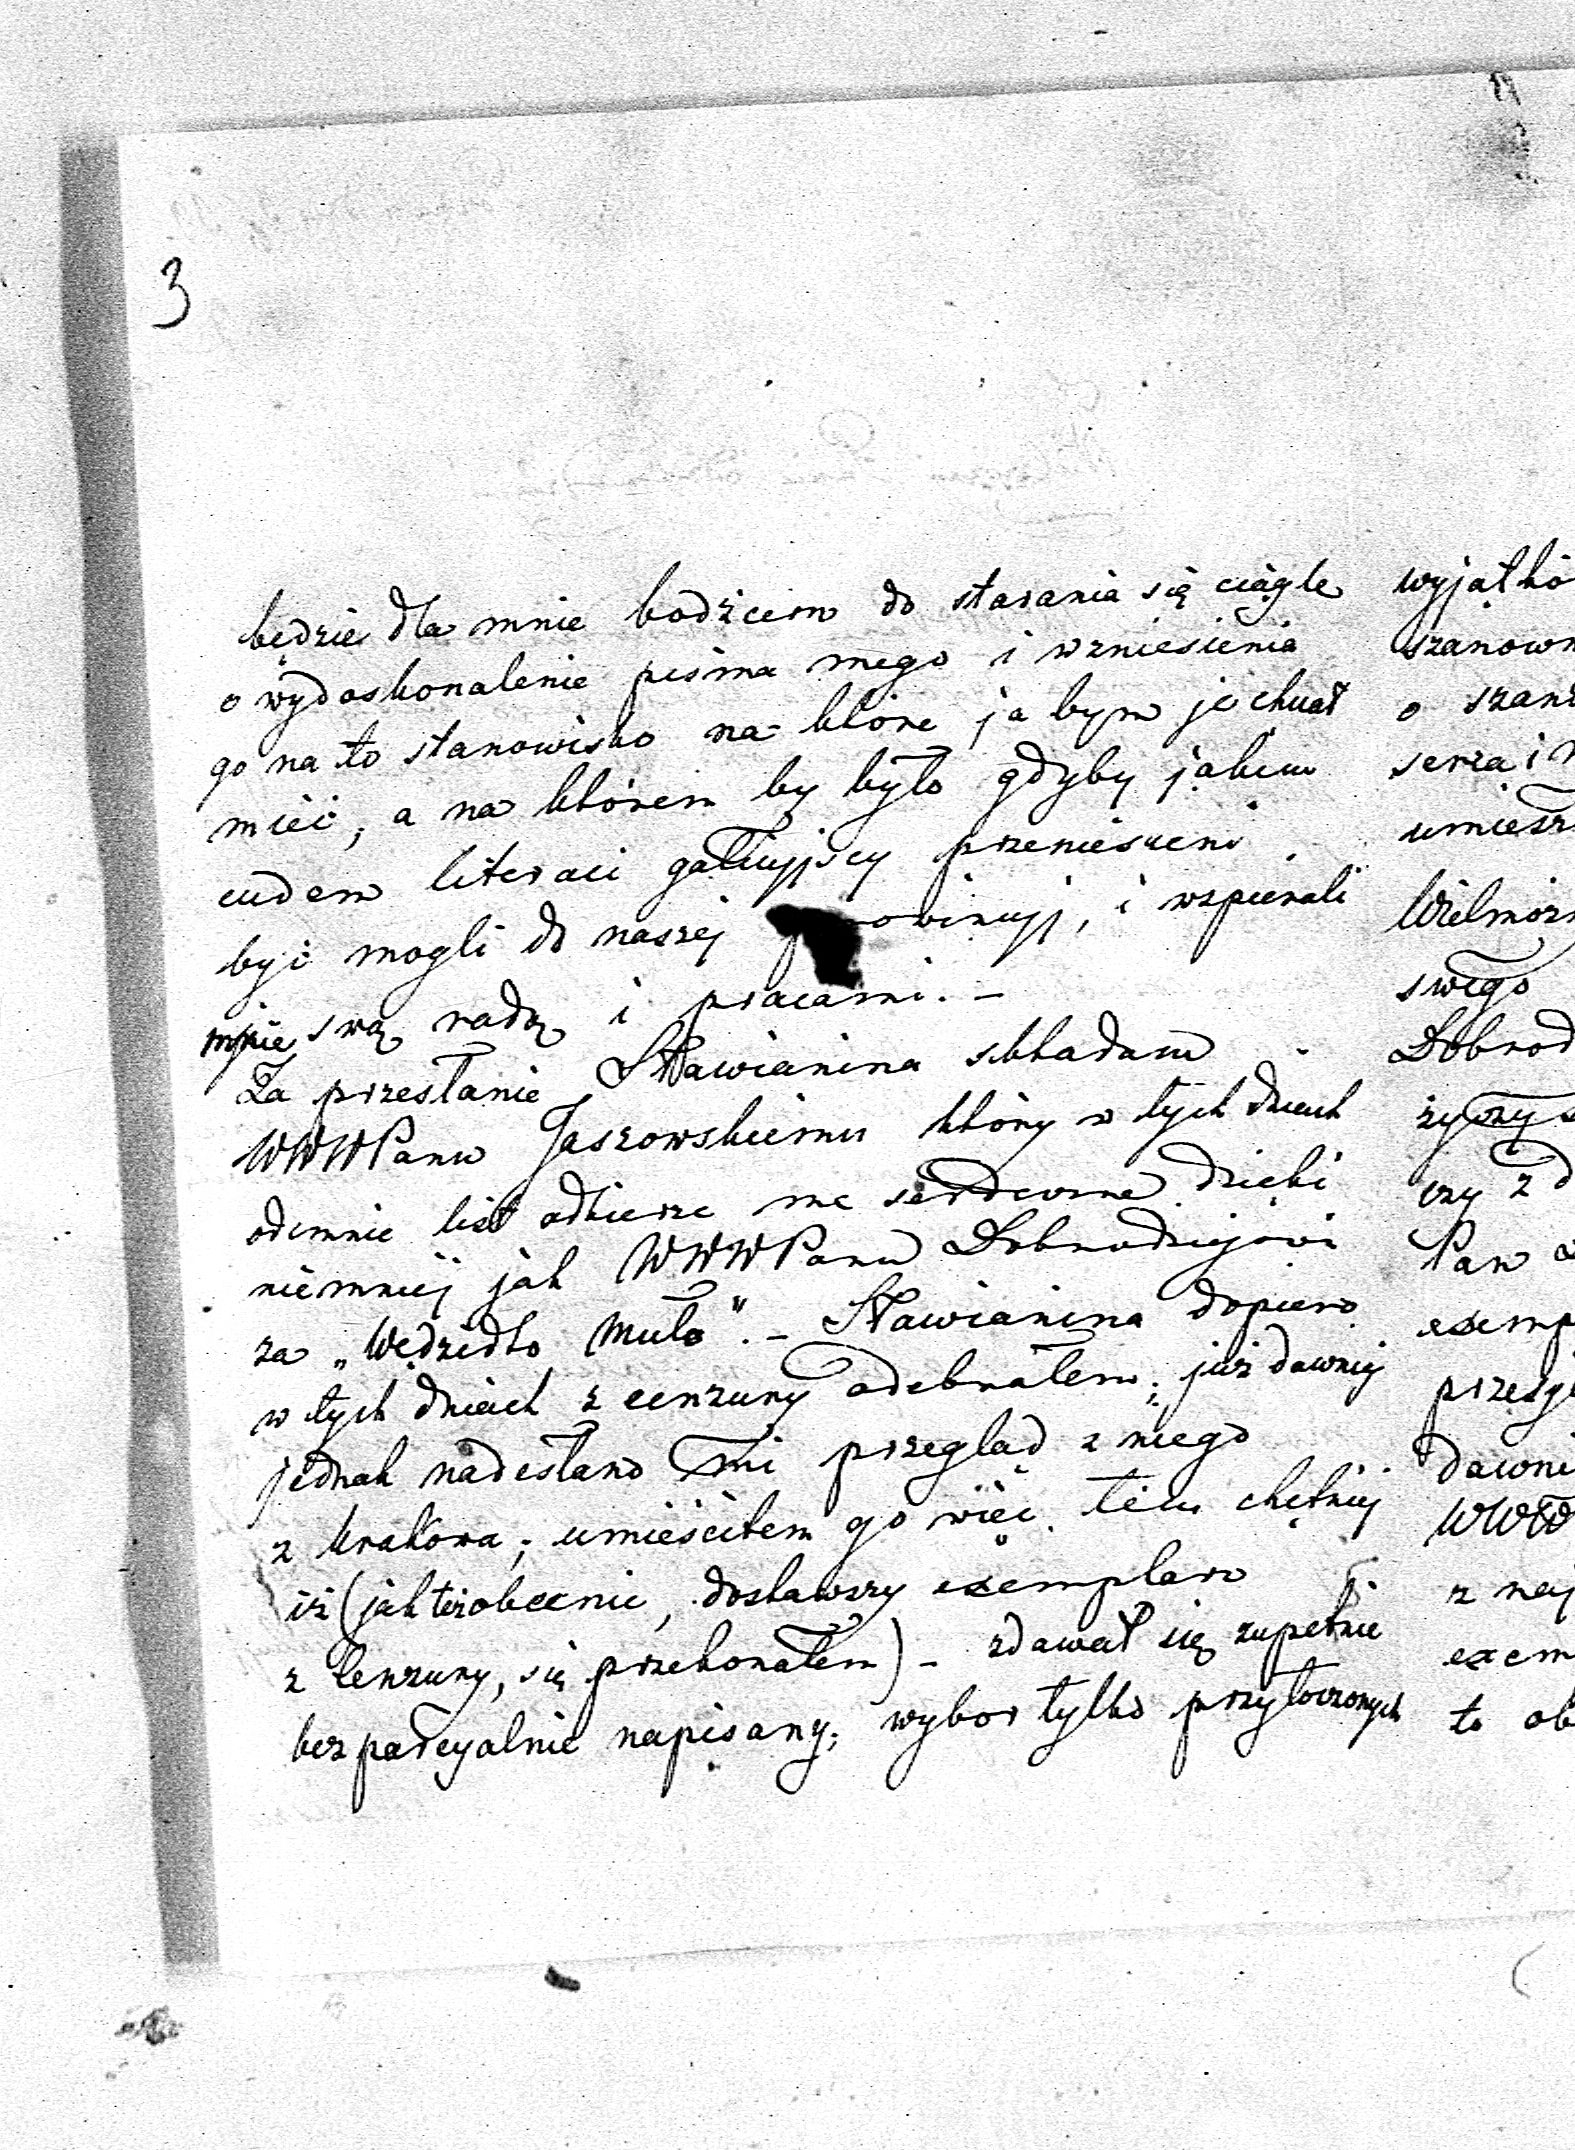 3
będzie dla mnie bodźcem do starania się ciągle
o wydoskonalenie pisma mego i wzniesienia
go na to stanowisko na które ja bym je chciał
mieć, a na którem by było gdyby jakim
cudem literaci galicyjscy przeniesieni
być mogli do naszej prowincyj, i wspierali
mnie swą radą i pracami. –
Za przesłanie Sławianina składam
WWWPanu Jaszowskiemu który w tych dniach
odemnie list odbierze me serdeczne dzięki
niemniej jak WWWPanu Dobrodziejowi
za „Wędzidło Muło". – Sławianina dopiero
w tych dniach z cenzury odebrałem; już dawniej
jednak nadesłano mi przegląd z niego
z Krakowa; umieściłem go więc tem chętniej
iż (jak też obecnie, dostawszy exemplarz
z Cenzury, się przekonałem) – zdawał się zupełnie
bezparcyalnie napisany; wybor tylko przytoczonych
wyjątkó
szanown
o szan
serza i
umieszcz
Wielmożn
swego
Dobrod
czy z d
Pan
exemp
przesył
dawni
WWW
z naj
exem
to ob